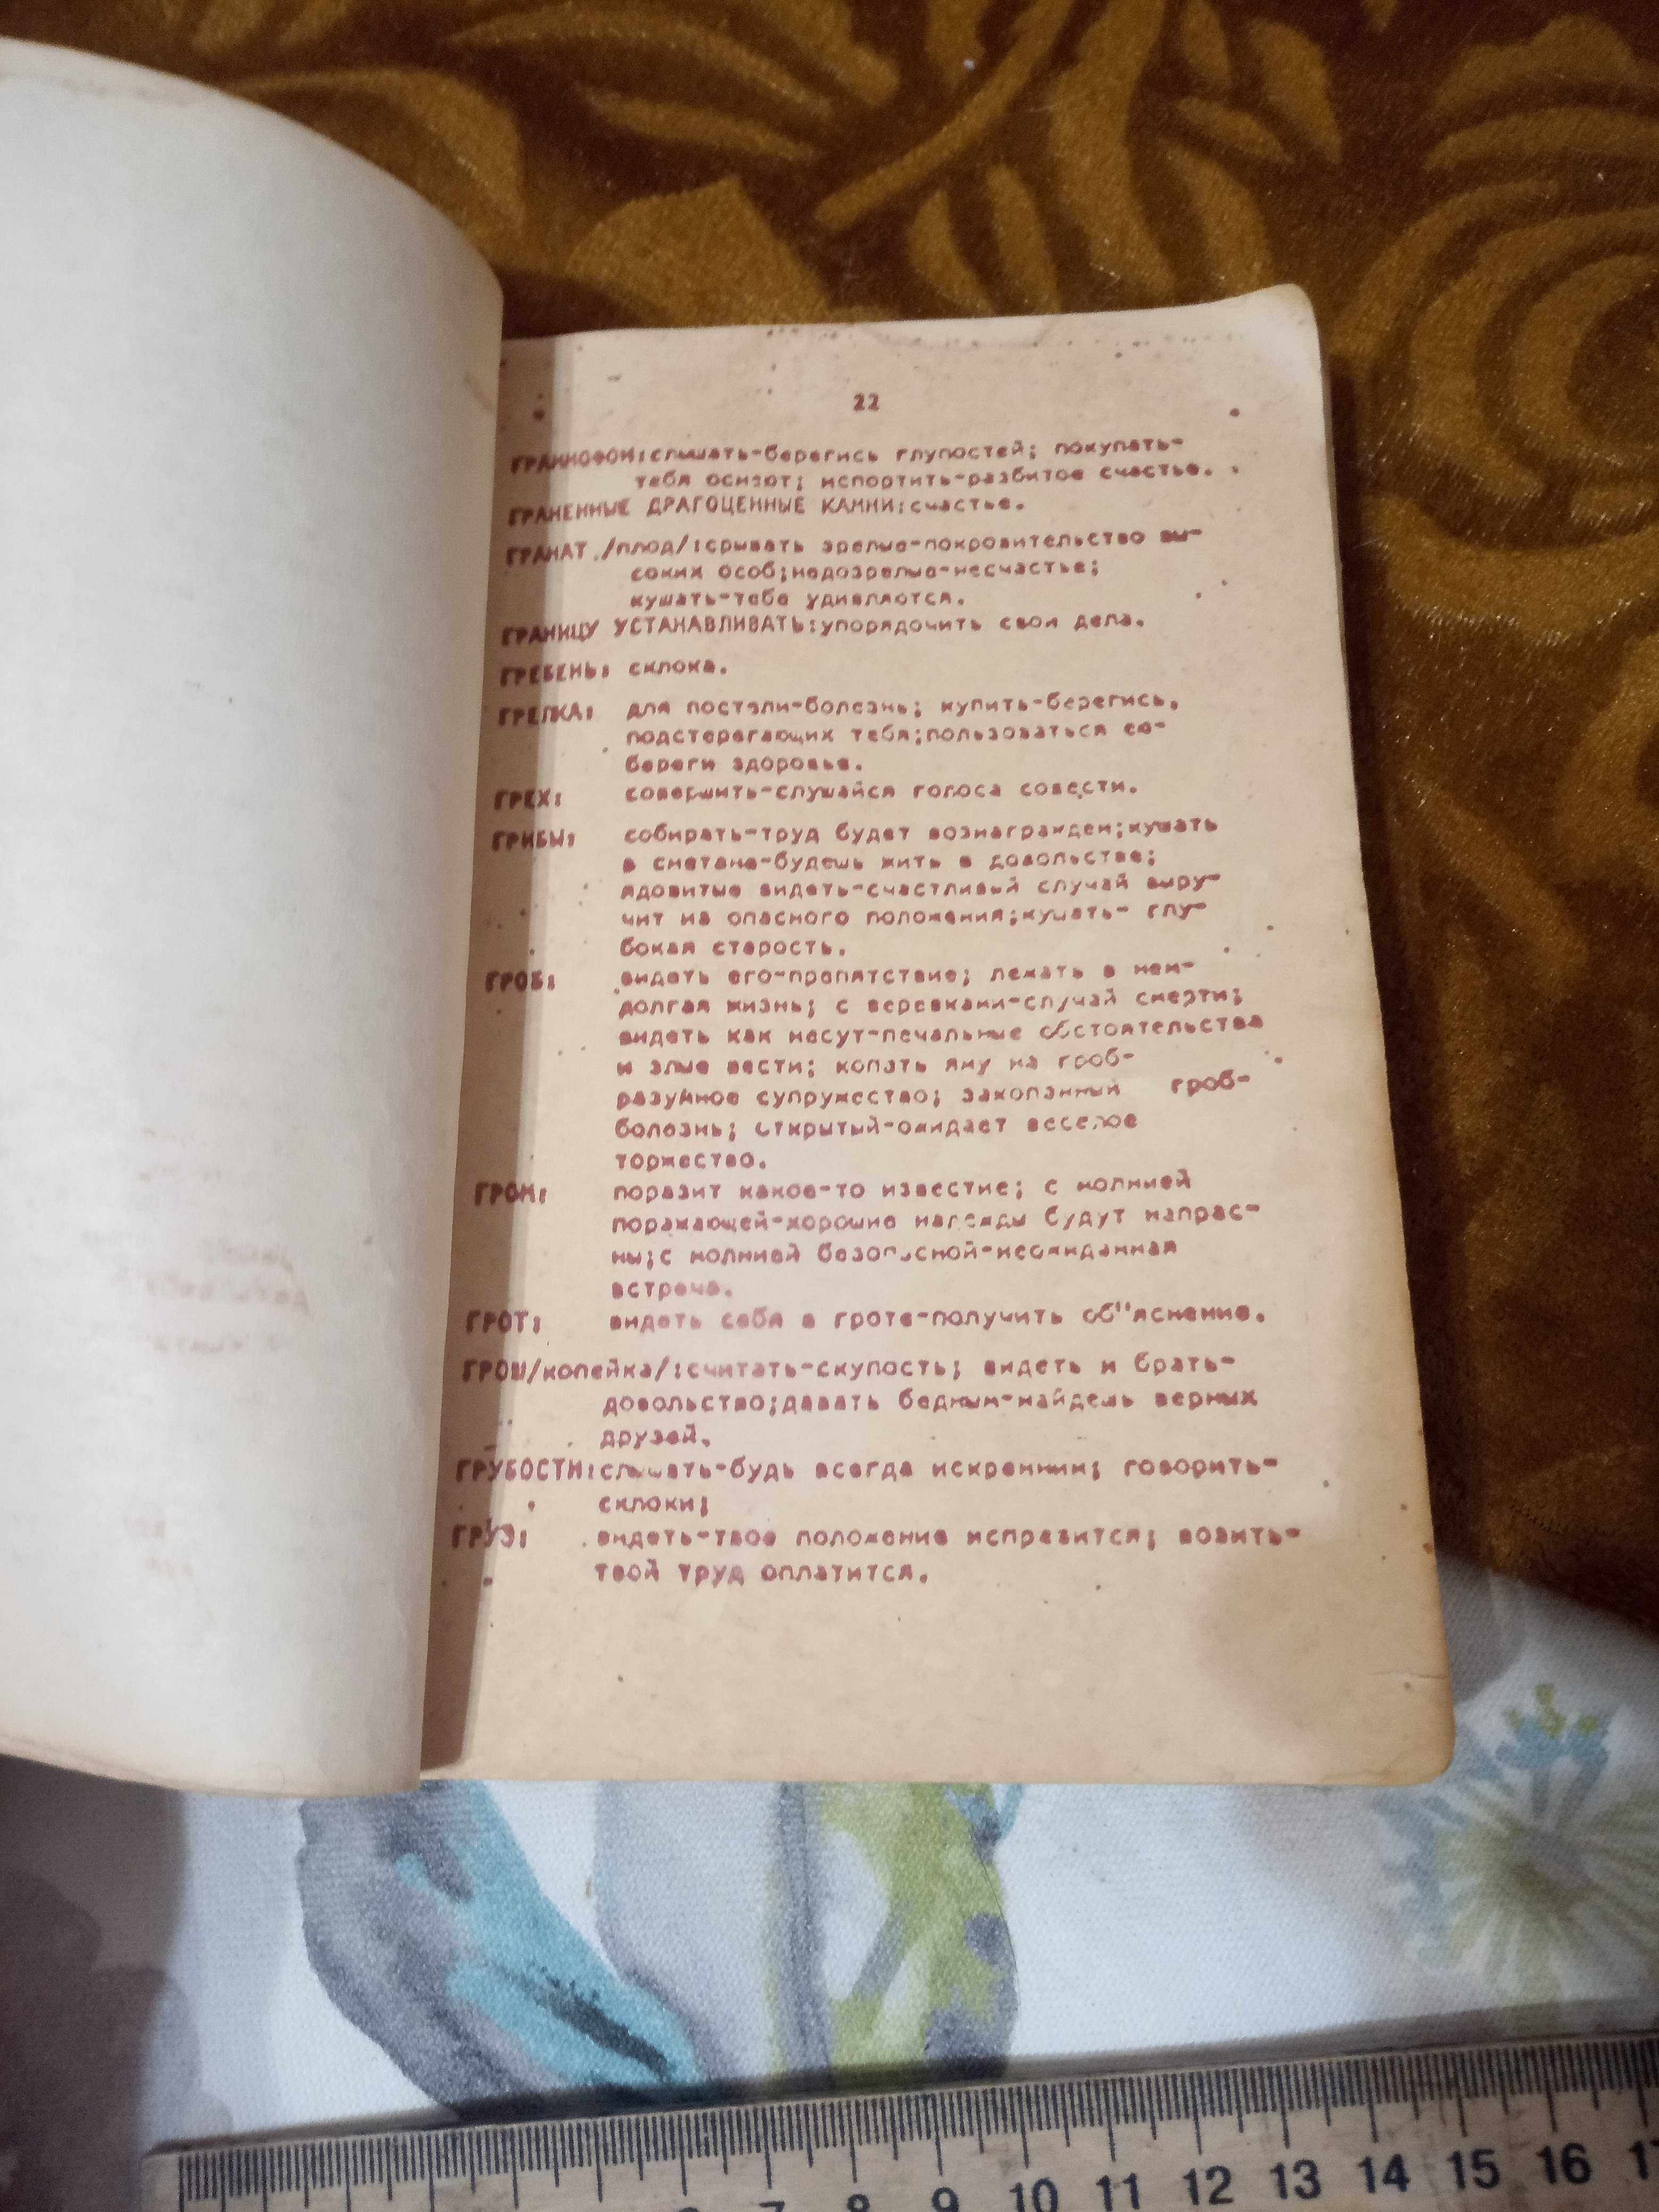 22
ГРАММОФОН:слышать-берегись глупостей; покупать-
тебя осмеют; испортить-разбитое счастье.
ГРАНЕННЫЕ ДРАГОЦЕННЫЕ КАМНИ:счастье.
ГРАНАТ /плод/:срывать зрелые-покровительство вы-
соких особ;недозрелые-несчастье;
кушать-тебе удивляются.
ГРАНИЦУ УСТАНАВЛИВАТЬ:упорядочить свои дела.
ГРЕБЕНЬ: склока.
ГРЕЛКА: для постели-болезнь; купить-берегись,
подстерегающих тебя;пользоваться ею-
береги здоровье.
ГРЕХ: совершить-слушайся голоса совести.
ГРИБЫ: собирать-труд будет вознагражден;кушать
в сметане-будешь жить в довольстве;
ядовитые видеть-счастливый случай выру-
чит из опасного положения;кушать- глу-
бокая старость.
ГРОБ: видеть его-препятствие; лежать в нем-
долгая жизнь; с веревками-случай смерти;
видеть как несут-печальные обстоятельства
и злые вести; копать яму на гроб-
разумное супружество; закопанный гроб-
болезнь; открытый-ожидает веселое
торжество.
ГРОМ: поразит какое-то известие; с молнией
поражающей-хорошие надежды будут напрас-
ны;с молнией безопасной-неожиданная
встреча.
ГРОТ: видеть себя в гроте-получить об"яснение.
ГРОШ/копейка/:считать-скупость; видеть и брать-
довольство;давать бедным-найдешь верных
друзей.
ГРУБОСТИ:слышать-будь всегда искренним; говорить-
склоки;
ГРУЗ: видеть-твое положение исправится; возить-
твой труд оплатится.
7 8 9 10 11 12 13 14 15 16